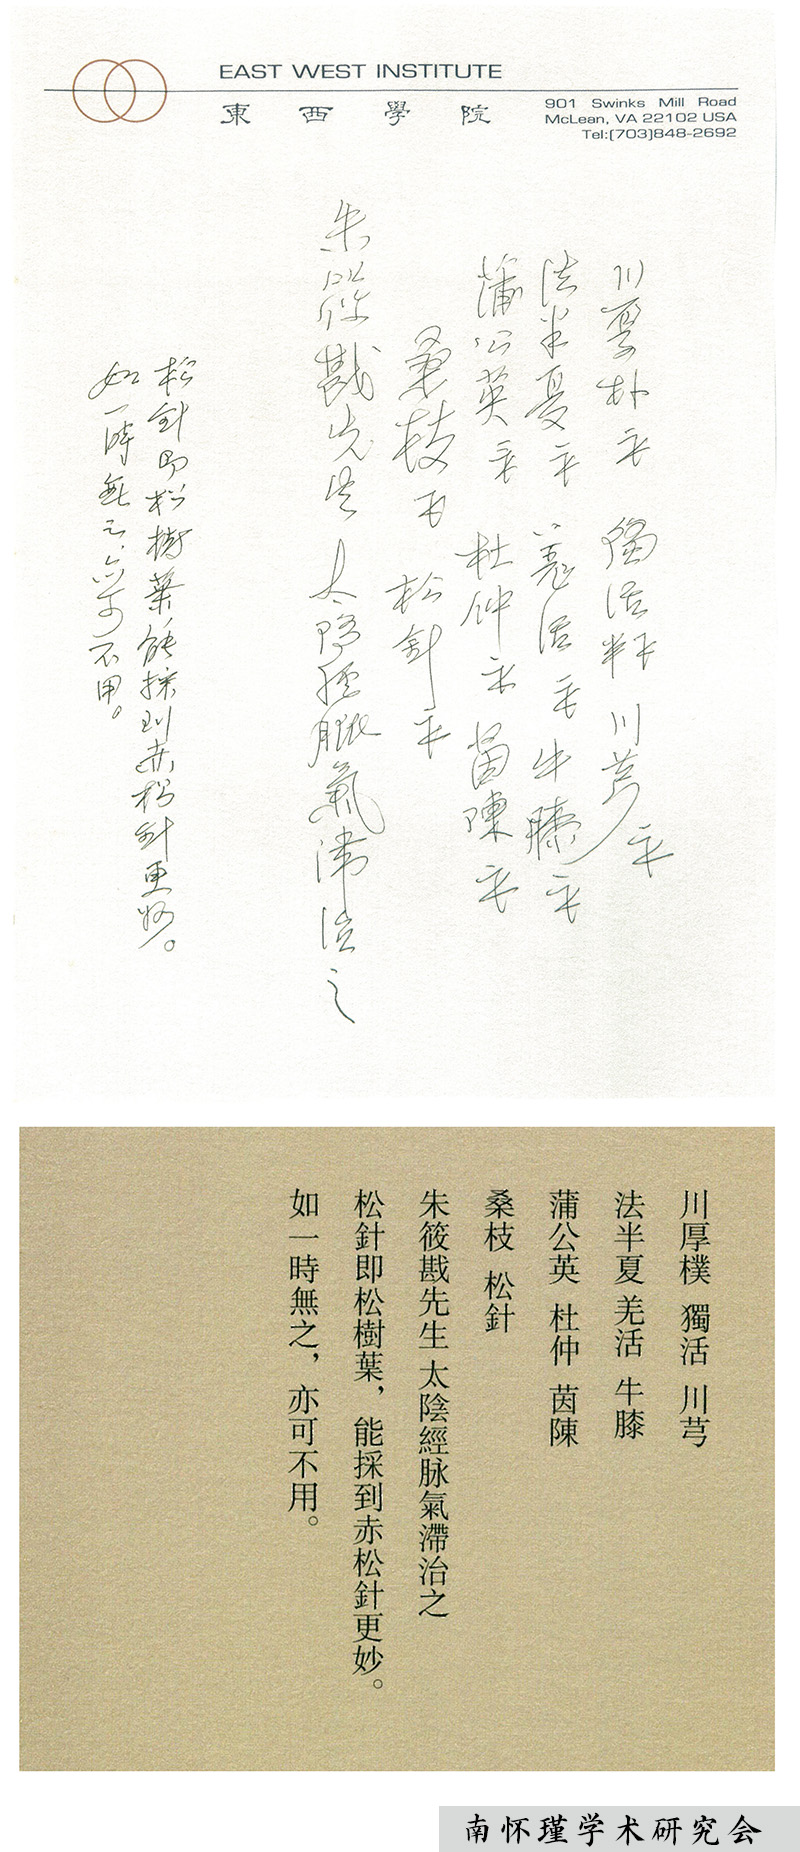 EAST WEST INSTITUTE
東西學院
901 Swinks Mill Road
McLean, VA 22102 USA
Tel:(703)848-2692
川厚朴 獨活 川芎
法半夏 羌活 牛膝
蒲公英 杜仲 茵陳
桑枝 松針
朱筱戡先生 太陰經脉氣滯治之
松針即松樹葉,能採到赤松針更妙。
如一時無之,亦可不用。
川厚樸 獨活 川芎
法半夏 羌活 牛膝
蒲公英 杜仲 茵陳
桑枝 松針
朱筱戡先生 太陰經脉氣滯治之
松針即松樹葉,能採到赤松針更妙。
如一時無之,亦可不用。
南怀瑾学术研究会